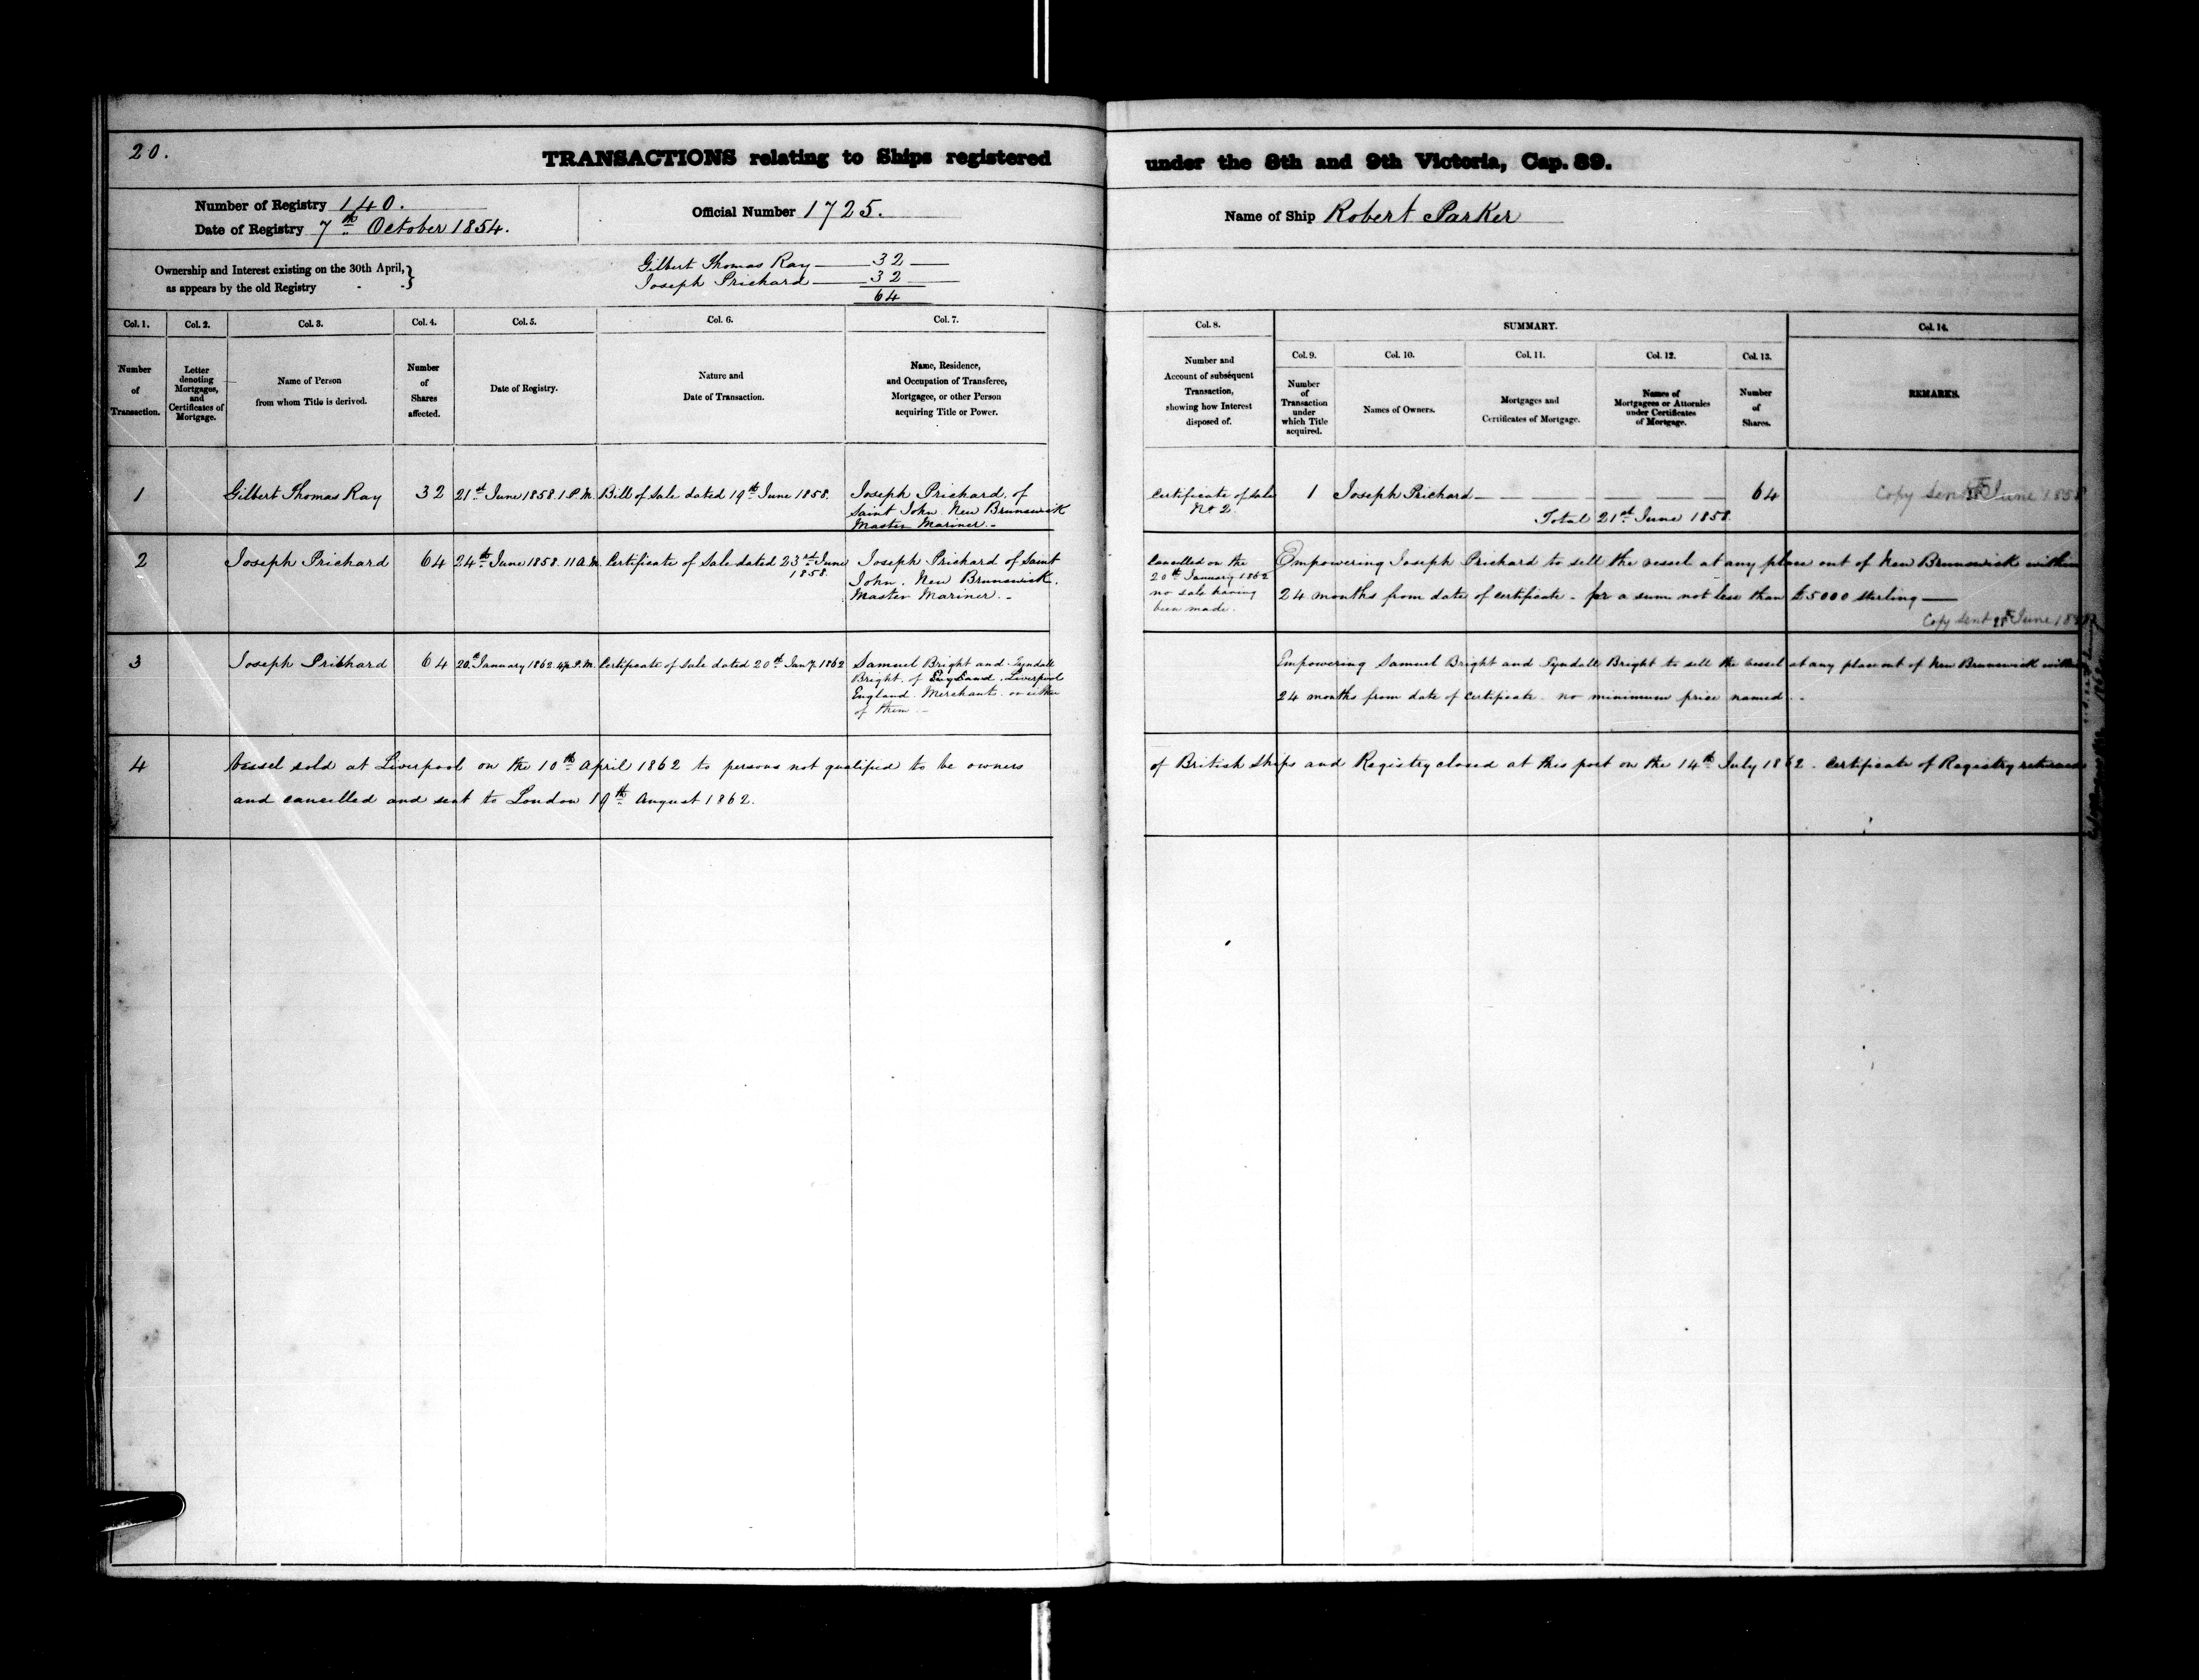 20.
TRANSACTIONS relating to Ships registered under the 8th and 9th Victoria, Cap. 89.
Number of Registry 140.
Date of Registry 7th October 1854.
Official Number 1725.
Name of Ship Robert Parker
Ownership and Interest existing on the 30th April,}
as appears by the old Registry
Gilbert Thomas Ray — 32 —
Joseph Prichard — 32 —
64
Col. 1.
Number
of
Transaction.
Col. 2.
Letter
denoting
Mortgages,
and
Certificates of
Mortgage.
Col. 3.
Name of Person
from whom Title is derived.
Col. 4.
Number
of
Shares
affected.
Col. 5.
Date of Registry.
Col. 6.
Nature and
Date of Transaction.
Col. 7.
Name, Residence,
and Occupation of Transferee,
Mortgagee, or other Person
acquiring Title or Power.
Col. 8.
Number and
Account of subsequent
Transaction,
showing how Interest
disposed of.
SUMMARY.
Col. 9.
Number
of
Transaction
under
which Title
acquired.
Col. 10.
Names of Owners.
Col. 11.
Mortgages and
Certificates of Mortgage.
Col. 12.
Names of
Mortgagees or Attornies
under Certificates
of Mortgage.
Col. 13.
Number
of
Shares.
Col. 14.
REMARKS.
1
Gilbert Thomas Ray
32
21st June 1858. 1 P.M.
Bill of Sale dated 19th June 1858.
Joseph Prichard of
Saint John. New Brunswick
Master Mariner. -
Certificate of Sale
No 2.
1
Joseph Prichard
64
Total 21st June 1858.
Copy sent June 1858
2
Joseph Prichard
64
24th June 1858. 11 A.M.
Certificate of Sale dated 23rd June
1858.
Joseph Prichard of Saint
John. New Brunswick.
Master Mariner. -
Cancelled on the
20th January 1862
no sale having
been made.
Empowering Joseph Prichard to sell the vessel at any place out of New Brunswick within
24 months from date of certificate - for a sum not less than £5000 sterling —
Copy sent June
3
Joseph Prichard
64
20th January 1862. P.M.
Certificate of Sale dated 20th Jany. 1862
Samuel Bright and Tyndall
Bright. of England. Liverpool
England. Merchants. or either
of them -
Empowering Samuel Bright and Tyndall Bright to sell the vessel at any place out of New Brunswick within
24 months from date of certificate. no minimum price named. -
4
Vessel sold at Liverpool on the 10th April 1862 to persons not qualified to be owners of British Ships and Registry closed at this port on the 14th July 1862. Certificate of Registry returned
and cancelled and sent to London 19th August 1862.